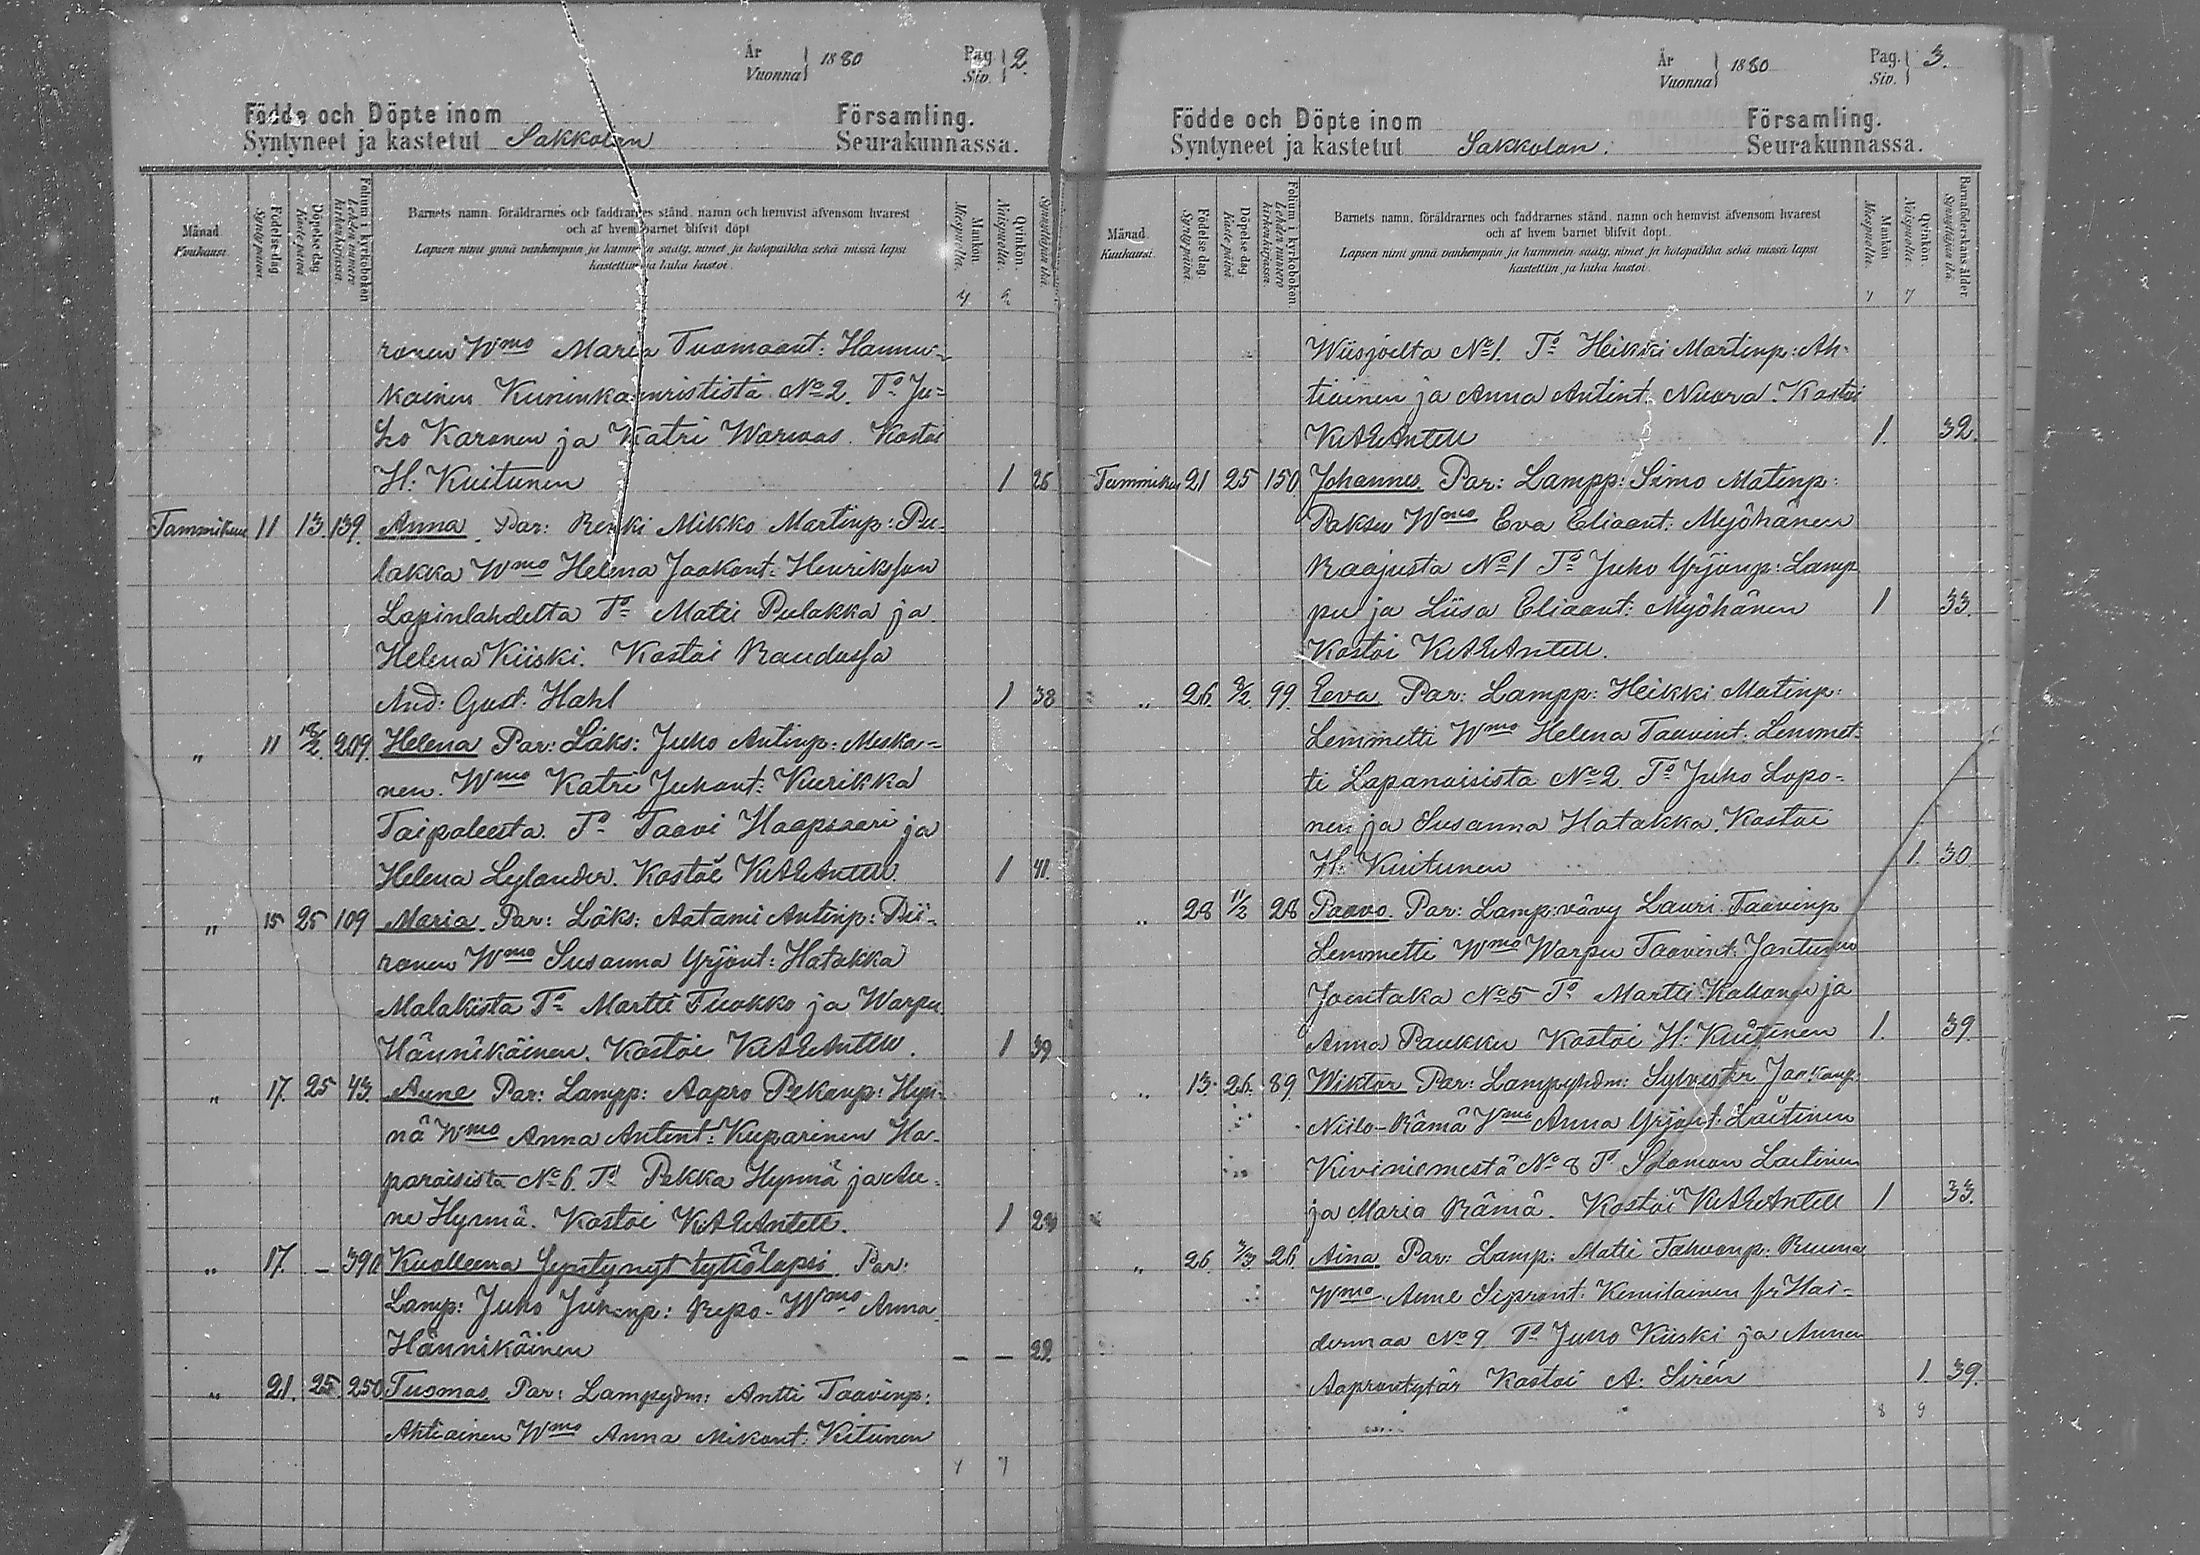 År
Vuonna 1880
Pag. 2.
Siv.
Födde och Döpte inom Församling.
Syntyneet ja kastetut Sakkolan Seurakunnassa.
Månad. Kuukausi.
Födelse-dag. Syntypäivä.
Döpelse-dag. Kastepäivä.
Folium i kyrkoboken. Lehden numero kirkonkirjassa.
Barnets namn, föräldrarnes och faddrarnes stånd, namn och hemvist äfvensom hvarest
och af hvem barnet blifvit döpt.
Lapsen nimi ynnä vanhempain ja kummein sääty, nimet ja kotopaikka sekä missä lapsi
kastettiin ja kuka kastoi.
Mankön. Miespuolia.
Qvinkön. Naispuolia.
Synnyttäjän ikä.
ronen Wmo Maria Tuomaant: Hannu-
kainen Kuninkaanrististä No 2. To Ju-
ho Karonen ja Katri Warwas. Kastoi
H: Kuitunen 1 26
Tammikuu 11 13. 139. Anna. Par: Renki Mikko Martinp: Pu-
lakka Wmo Helena Jaakont: Henriksson
Lapinlahdelta To Matti Pulakka ja
Helena Kiiski. Kastoi Raudussa
And: Gust: Hahl 1 38
" 11 18/2. 209. Helena Par: Läks: Juho Antinp: Meska-
nen. Wmo Katri Juhont: Kuurikka
Taipaleesta. To Taavi Haapsaari ja
Helena Lylander. Kastoi KAEAntell 1 41.
" 15 25 109 Maria. Par: Läks: Aatami Antinp: Pii-
ronen Wmo Susanna Yrjönt: Hatakka
Malakista To Martti Tuokko ja Warpu
Hännikäinen. Kastoi KAEAntell. 1 39
" 17. 25 43. Aune Par: Lampp: Aapro Pekanp: Hyn-
nä Wmo Anna Antint: Kuparinen Ha-
paraisista No 6. To Pekka Hynnä ja Au-
ne Hynnä. Kastoi KAEAntell. 1
" 17. — 390 Kuolleena syntynyt tyttölapsi. Par:
Lamp: Juho Juhonp: Repo - Wmo Anna
Hännikäinen — — 22.
" 21. 25. 250 Tuomas Par: Lampydm: Antti Taavinp:
Ahtiainen Wmo Anna Mikont: Kitunen
År
Vuonna 1880
Pag. 3.
Siv.
Födde och Döpte inom Församling.
Syntyneet ja kastetut Sakkolan. Seurakunnassa.
Månad. Kuukausi.
Födelse-dag. Syntypäivä.
Döpelse-dag. Kastepäivä.
Folium i kyrkoboken. Lehden numero kirkonkirjassa.
Barnets namn, föräldrarnes och faddrarnes stånd, namn och hemvist äfvensom hvarest
och af hvem barnet blifvit döpt.
Lapsen nimi ynnä vanhempain ja kummein sääty, nimet ja kotopaikka sekä missä lapsi
kastettiin ja kuka kastoi.
Mankön. Miespuolia.
Qvinkön. Naispuolia.
Barnaföderskans ålder. Synnyttäjän ikä.
Wiisjoelta No 1. To Heikki Martinp: Ah-
tiainen ja Anna Antint. Nuora. Kastoi
KAEAntell 1. 32.
Tammikuu 21 25 150 Johannes Par: Lampp: Simo Matinp:
Paksu Wmo Eva Eliaant: Myöhänen
Raajusta No 1 To Juho Yrjönp: Lamp-
pu ja Liisa Eliaant: Myöhänen 1 33.
Kastoi KAEAntell.
" 26. 8/2. 99. Eeva Par: Lampp: Heikki Matinp:
Lemmetti Wmo Helena Taavint. Lemmet-
ti Lapanaisista No 2 To Juho Lopo-
nen ja Susanna Hatakka. Kastoi
H: Kuitunen 1. 30
" 28 11/2 28 Paavo. Par: Lamp: vävy Lauri Taavinp
Lemmetti Wmo Warpu Taavint. Jantunen
Joentaka No 5 To Martti Kahonen ja
Anna Paukku Kastoi H: Kuitunen 1. 39.
" 13. 26. 89. Wiktor Par: Lampydm: Sylvester Jaakonp:
Niilo-Rämä Wmo Anna Yrjönt. Laitinen
Kiviniemestä No 8 To Salomon Laitinen
ja Maria Rämä. Kastoi KAEAntell 1 33.
" 26. 3/3 26 Aina. Par: Lamp: Matti Tahvonp: Ruuna
Wmo Anne Sipront. Kemilainen fr Hai-
dermaa No 9 To Juho Kiiski ja Anna
Aaprontytär Kastoi A: Sirén 1. 39.
8 9